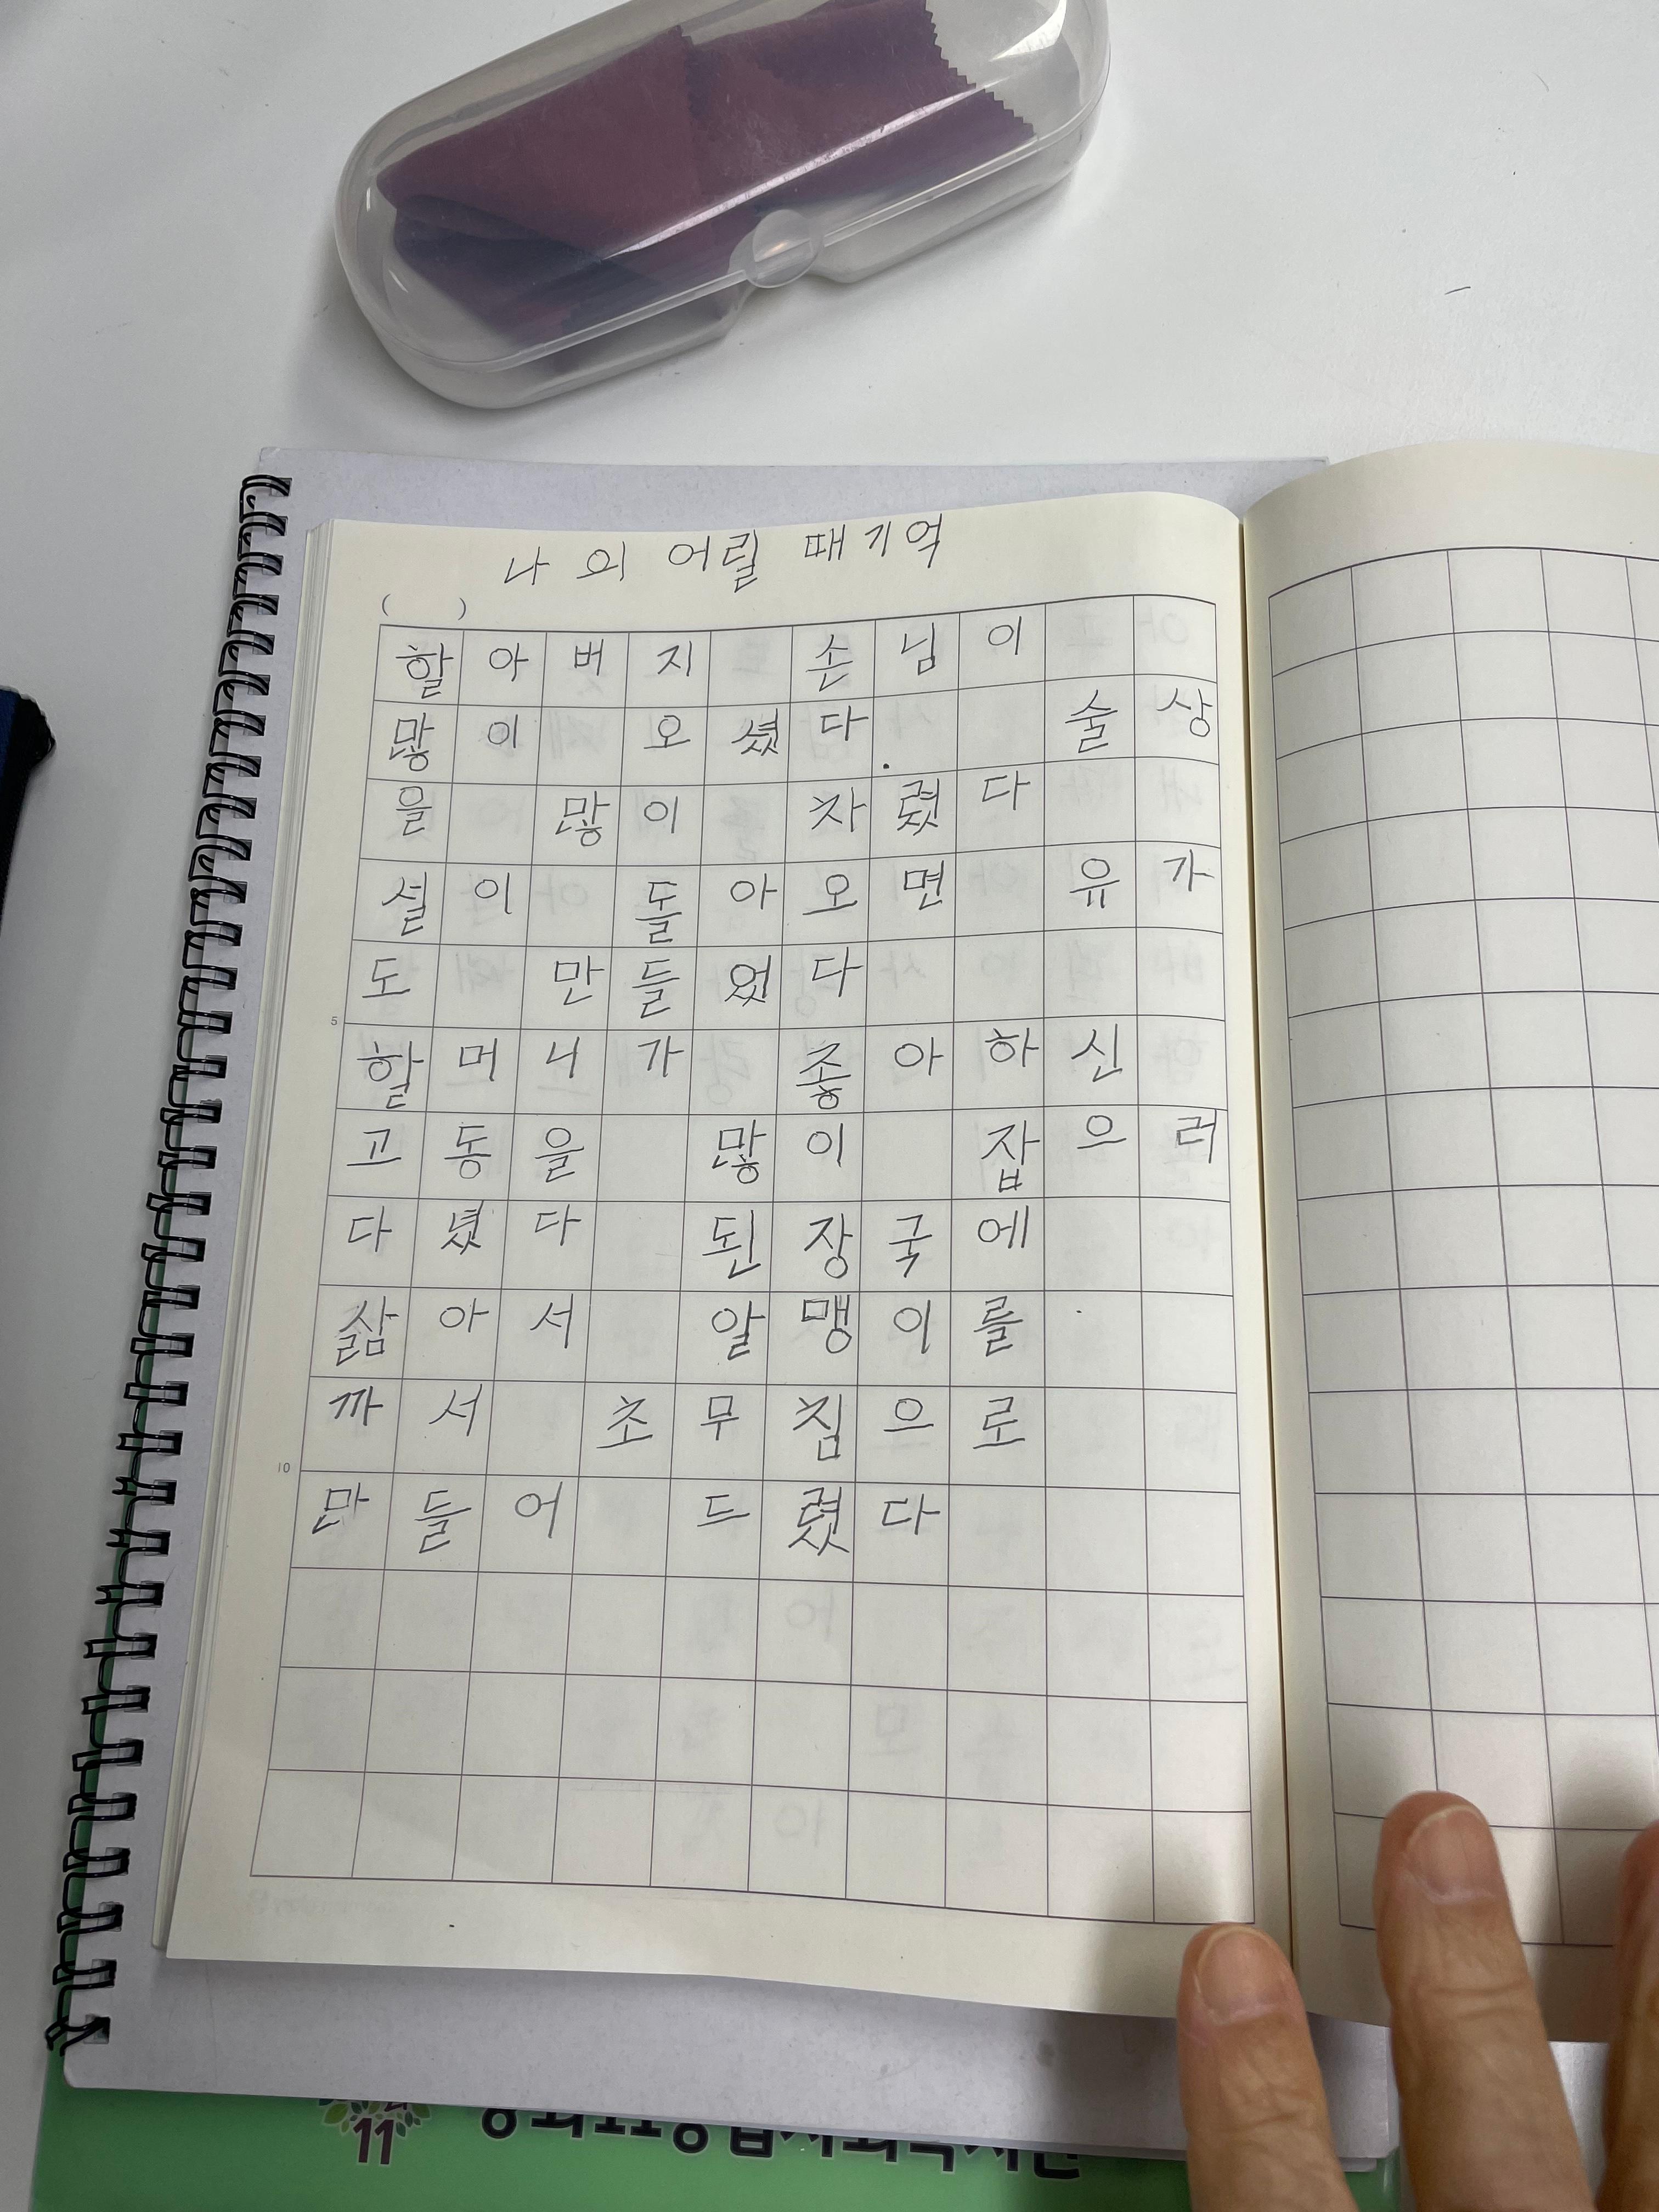 나의 어릴 때 기억
( )
할아버지 손님이
많이 오셨다. 술상
을 많이 차렸다
설이 돌아오면 유가
도 만들었다
5
할머니가 좋아하신
고동을 많이 잡으러
다녔다 된장국에
삶아서 알맹이를
까서 초무침으로
10
만들어 드렸다
11